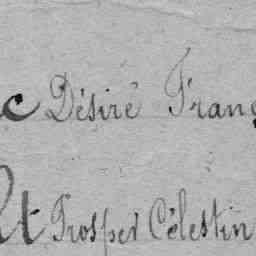 c Désiré Franç
t Prosper Célestin